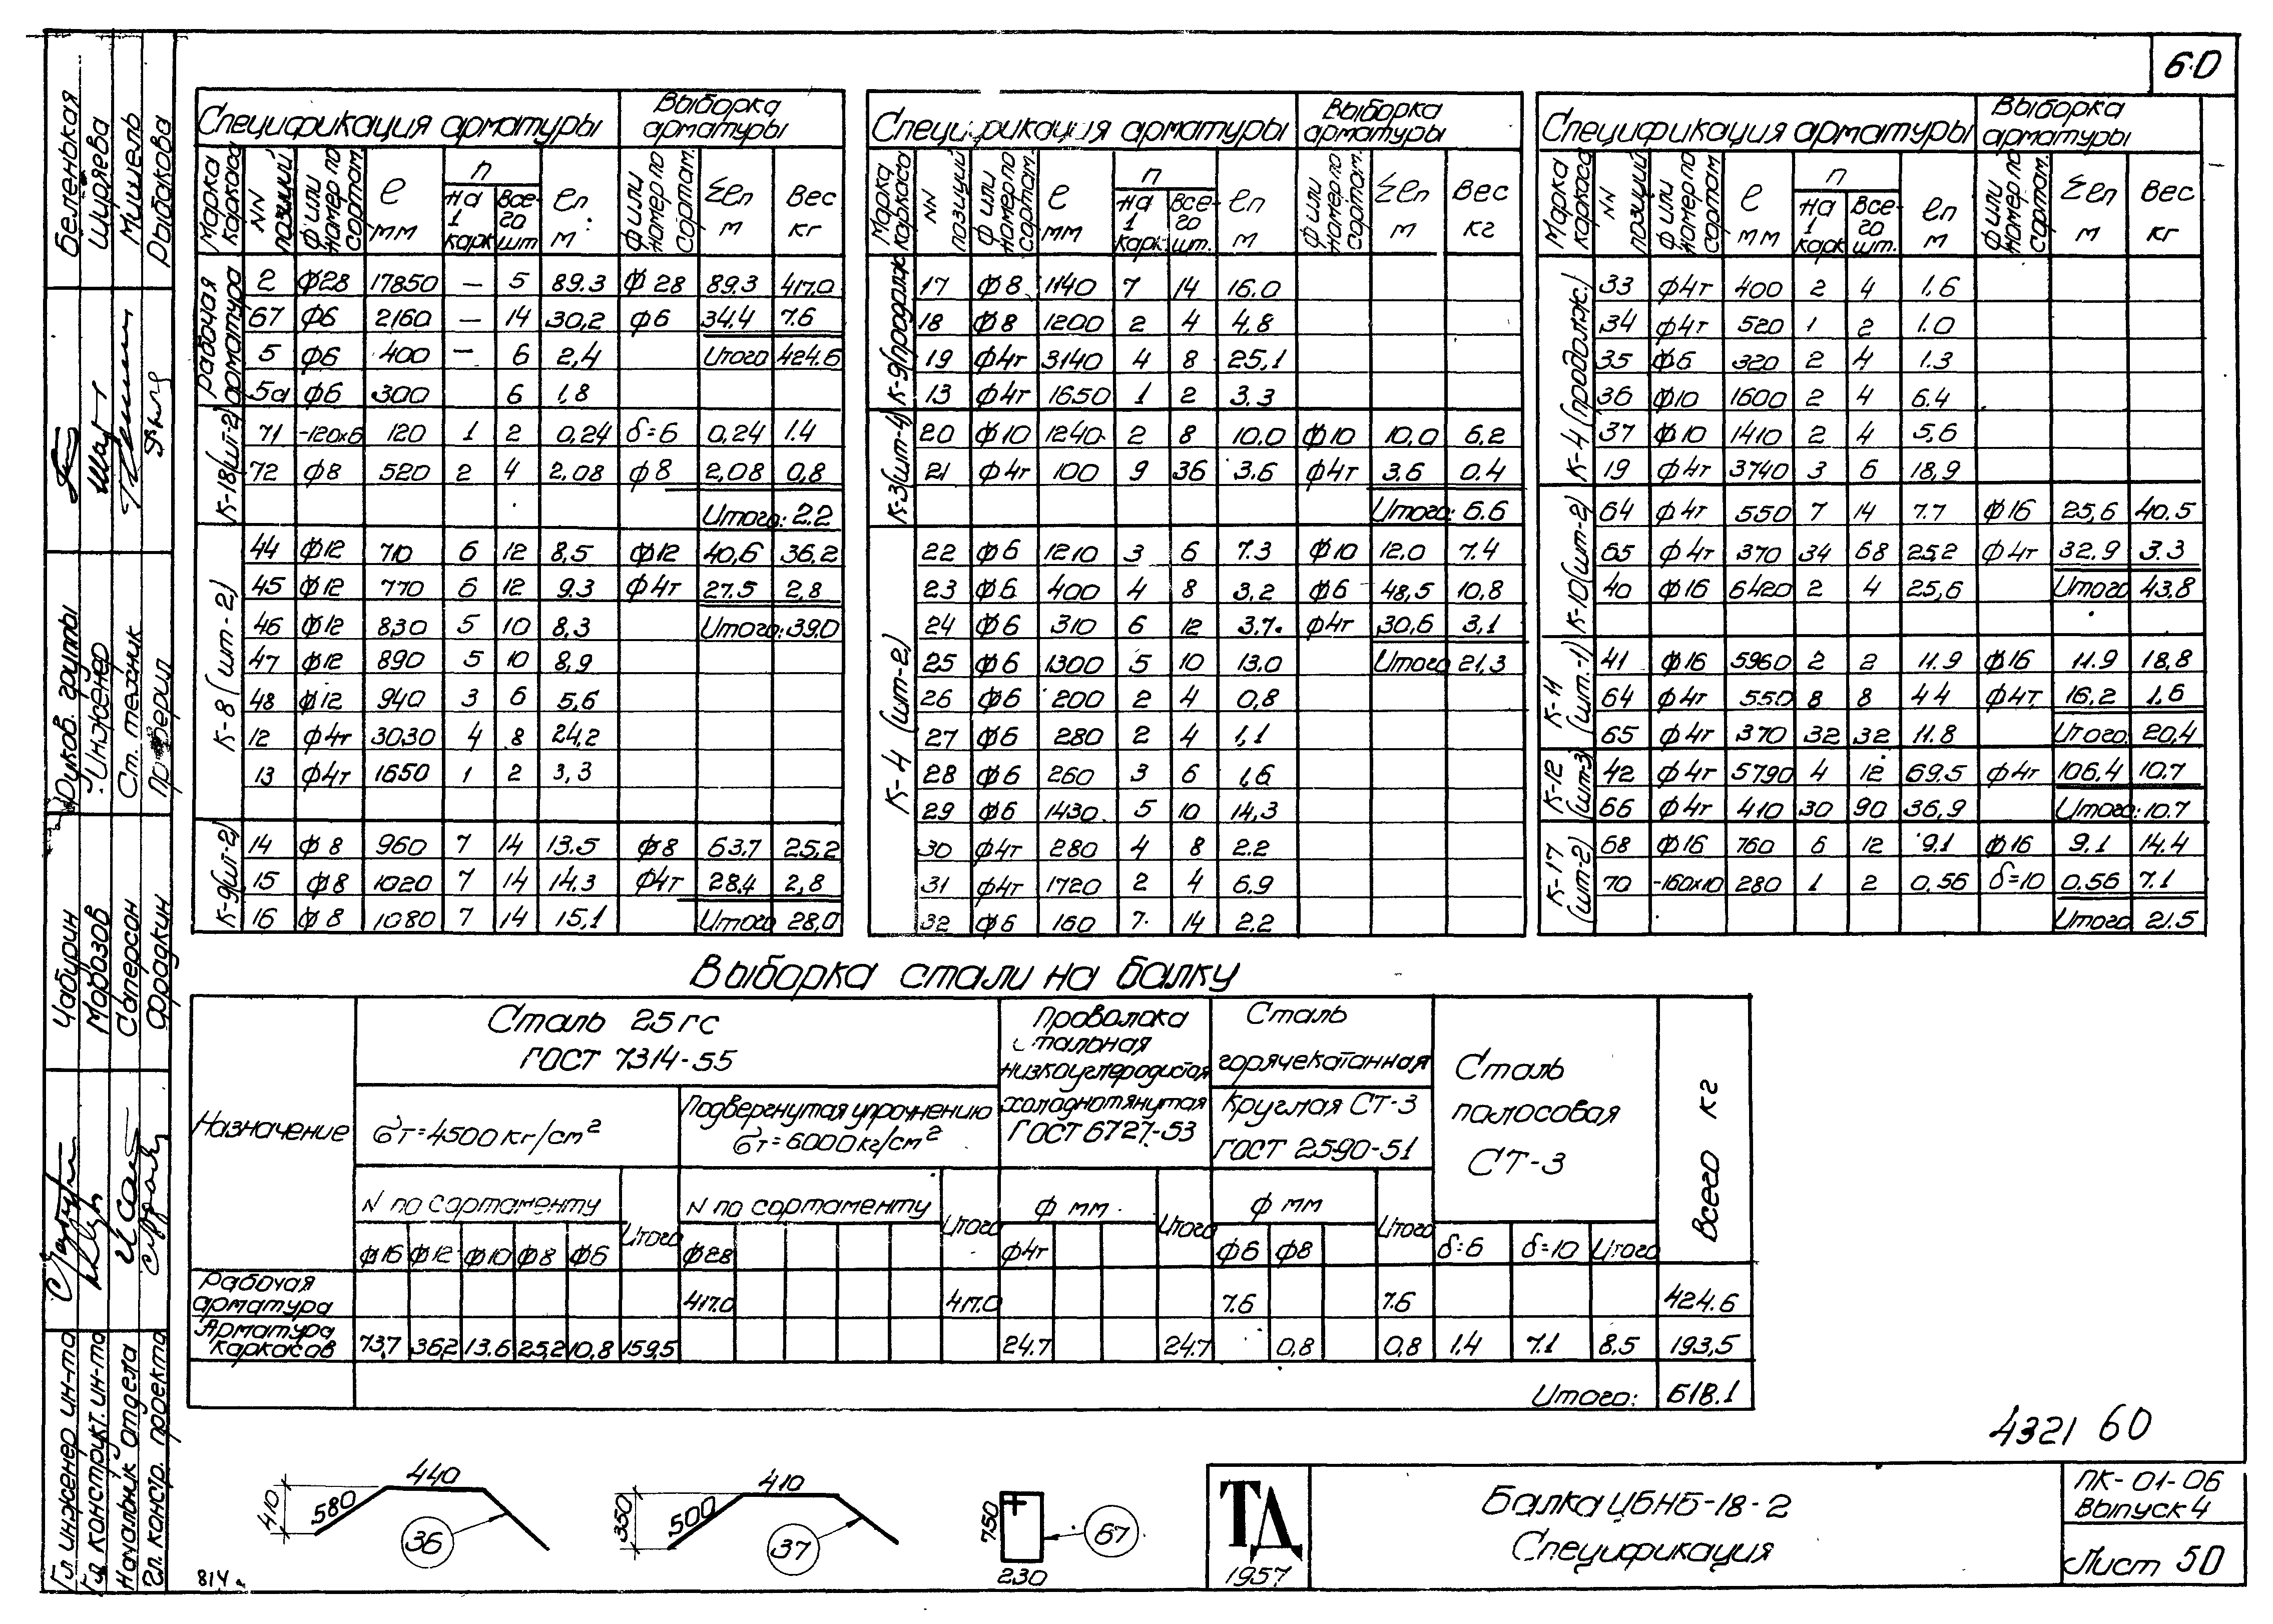 60
Спецификация арматуры | Выборка арматуры
Марка каркаса | NN позиций | ф или номер по сортам. | е мм | п на 1 карк | Все-го шт | еп м | ф или номер по сортам. | Σеп м | Вес кг
Рабочая арматура
2 | ф28 | 17850 | — | 5 | 89.3 | ф28 | 89.3 | 417.0
67 | ф6 | 2160 | — | 14 | 30,2 | ф6 | 34.4 | 7.6
5 | ф6 | 400 | — | 6 | 2,4 | Итого 424.6
5а | ф6 | 300 | 6 | 1,8
К-18(шт-2)
71 | -120х6 | 120 | 1 | 2 | 0,24 | δ=6 | 0,24 | 1.4
72 | ф8 | 520 | 2 | 4 | 2,08 | ф8 | 2,08 | 0,8
Итого: 2.2
К-8 (шт-2)
44 | ф12 | 710 | 6 | 12 | 8,5 | ф12 | 40,6 | 36,2
45 | ф12 | 770 | 6 | 12 | 9.3 | ф4т | 27.5 | 2,8
46 | ф12 | 830 | 5 | 10 | 8,3 | Итого: 39.0
47 | ф12 | 890 | 5 | 10 | 8,9
48 | ф12 | 940 | 3 | 6 | 5,6
12 | ф4т | 3030 | 4 | 8 | 24,2
13 | ф4т | 1650 | 1 | 2 | 3,3
К-9(шт-2)
14 | ф8 | 960 | 7 | 14 | 13.5 | ф8 | 63.7 | 25,2
15 | ф8 | 1020 | 7 | 14 | 14,3 | ф4т | 28.4 | 2,8
16 | ф8 | 1080 | 7 | 14 | 15,1 | Итого 28,0
Спецификация арматуры | Выборка арматуры
Марка каркаса | NN позиций | ф или номер по сортам. | е мм | п на 1 карк | Все-го шт. | еп м | ф или номер по сортам. | Σеп м | Вес кг
К-9(продолж.)
17 | ф8 | 1140 | 7 | 14 | 16.0
18 | ф8 | 1200 | 2 | 4 | 4,8
19 | ф4т | 3140 | 4 | 8 | 25,1
13 | ф4т | 1650 | 1 | 2 | 3.3
К-3(шт-4)
20 | ф10 | 1240 | 2 | 8 | 10,0 | ф10 | 10,0 | 6.2
21 | ф4т | 100 | 9 | 36 | 3.6 | ф4т | 3.6 | 0.4
Итого: 6.6
К-4 (шт-2)
22 | ф6 | 1210 | 3 | 6 | 7.3 | ф10 | 12.0 | 7.4
23 | ф6 | 400 | 4 | 8 | 3,2 | ф6 | 48,5 | 10,8
24 | ф6 | 310 | 6 | 12 | 3.7. | ф4т | 30,6 | 3,1
25 | ф6 | 1300 | 5 | 10 | 13.0 | Итого 21,3
26 | ф6 | 200 | 2 | 4 | 0,8
27 | ф6 | 280 | 2 | 4 | 1,1
28 | ф6 | 260 | 3 | 6 | 1,6
29 | ф6 | 1430 | 5 | 10 | 14,3
30 | ф4т | 280 | 4 | 8 | 2.2
31 | ф4т | 1720 | 2 | 4 | 6.9
32 | ф6 | 160 | 7 | 14 | 2.2
Спецификация арматуры | Выборка арматуры
Марка каркаса | NN позиций | ф или номер по сортам. | е мм | п на 1 карк | Все-го шт. | еп м | ф или номер по сортам. | Σеп м | Вес кг
К-4 (продолж.)
33 | ф4т | 400 | 2 | 4 | 1.6
34 | ф4т | 520 | 1 | 2 | 1.0
35 | ф6 | 320 | 2 | 4 | 1.3
36 | ф10 | 1600 | 2 | 4 | 6.4
37 | ф10 | 1410 | 2 | 4 | 5,6
19 | ф4т | 3740 | 3 | 6 | 18,9
К-10(шт-2)
64 | ф4т | 550 | 7 | 14 | 7.7 | ф16 | 25,6 | 40.5
65 | ф4т | 370 | 34 | 68 | 25.2 | ф4т | 32.9 | 3.3
40 | ф16 | 6420 | 2 | 4 | 25,6 | Итого 43,8
К-11 (шт.-1)
41 | ф16 | 5960 | 2 | 2 | 11.9 | ф16 | 11.9 | 18,8
64 | ф4т | 550 | 8 | 8 | 4.4 | ф4т | 16,2 | 1,6
65 | ф4т | 370 | 32 | 32 | 11.8 | Итого 20,4
К-12 (шт-3)
42 | ф4т | 5790 | 4 | 12 | 69.5 | ф4т | 106,4 | 10.7
66 | ф4т | 410 | 30 | 90 | 36,9 | Итого: 10.7
К-17 (шт-2)
68 | ф16 | 760 | 6 | 12 | 9,1 | ф16 | 9.1 | 14.4
70 | -160х10 | 280 | 1 | 2 | 0,56 | δ=10 | 0.56 | 7.1
Итого 21.5
Выборка стали на балку
Назначение
Сталь 25гс
ГОСТ 7314-55
σт=4500кг/см²
Подвергнутая упрочнению
σт=6000кг/см²
Проволока
стальная
низкоуглеродистая
холоднотянутая
ГОСТ 6727-53
Сталь
горячекатанная
круглая СТ-3
ГОСТ 2590-51
Сталь
полосовая
СТ-3
Всего кг
N по сортаменту | Итого | N по сортаменту | Итого | ф мм | Итого | ф мм | Итого
ф16 | ф12 | ф10 | ф8 | ф6 | ф28 | ф4т | ф6 | ф8 | δ=6 | δ=10 | Итого
Рабочая арматура | 417.0 | 417.0 | 7.6 | 7.6 | 424.6
Арматура каркасов | 73,7 | 36,2 | 13.6 | 25,2 | 10,8 | 159,5 | 24.7 | 24.7 | 0,8 | 0,8 | 1.4 | 7.1 | 8.5 | 193,5
Итого: 618.1
4321 60
410 580 440 36
350 500 410 37
750 230 67
814
ТД
1957
Балка ЦБНБ-18-2
Спецификация
ПК-01-06
Выпуск 4
Лист 50
Беленькая
Ширяева
Мишель
Рыбакова
Руков. группы
Инженер
Ст. техник
Проверил
Чабирин
Морозов
Саперсон
Фрадкин
Гл. инженер ин-та
Гл. конструкт. ин-та
Начальник отдела
Гл. констр. проекта